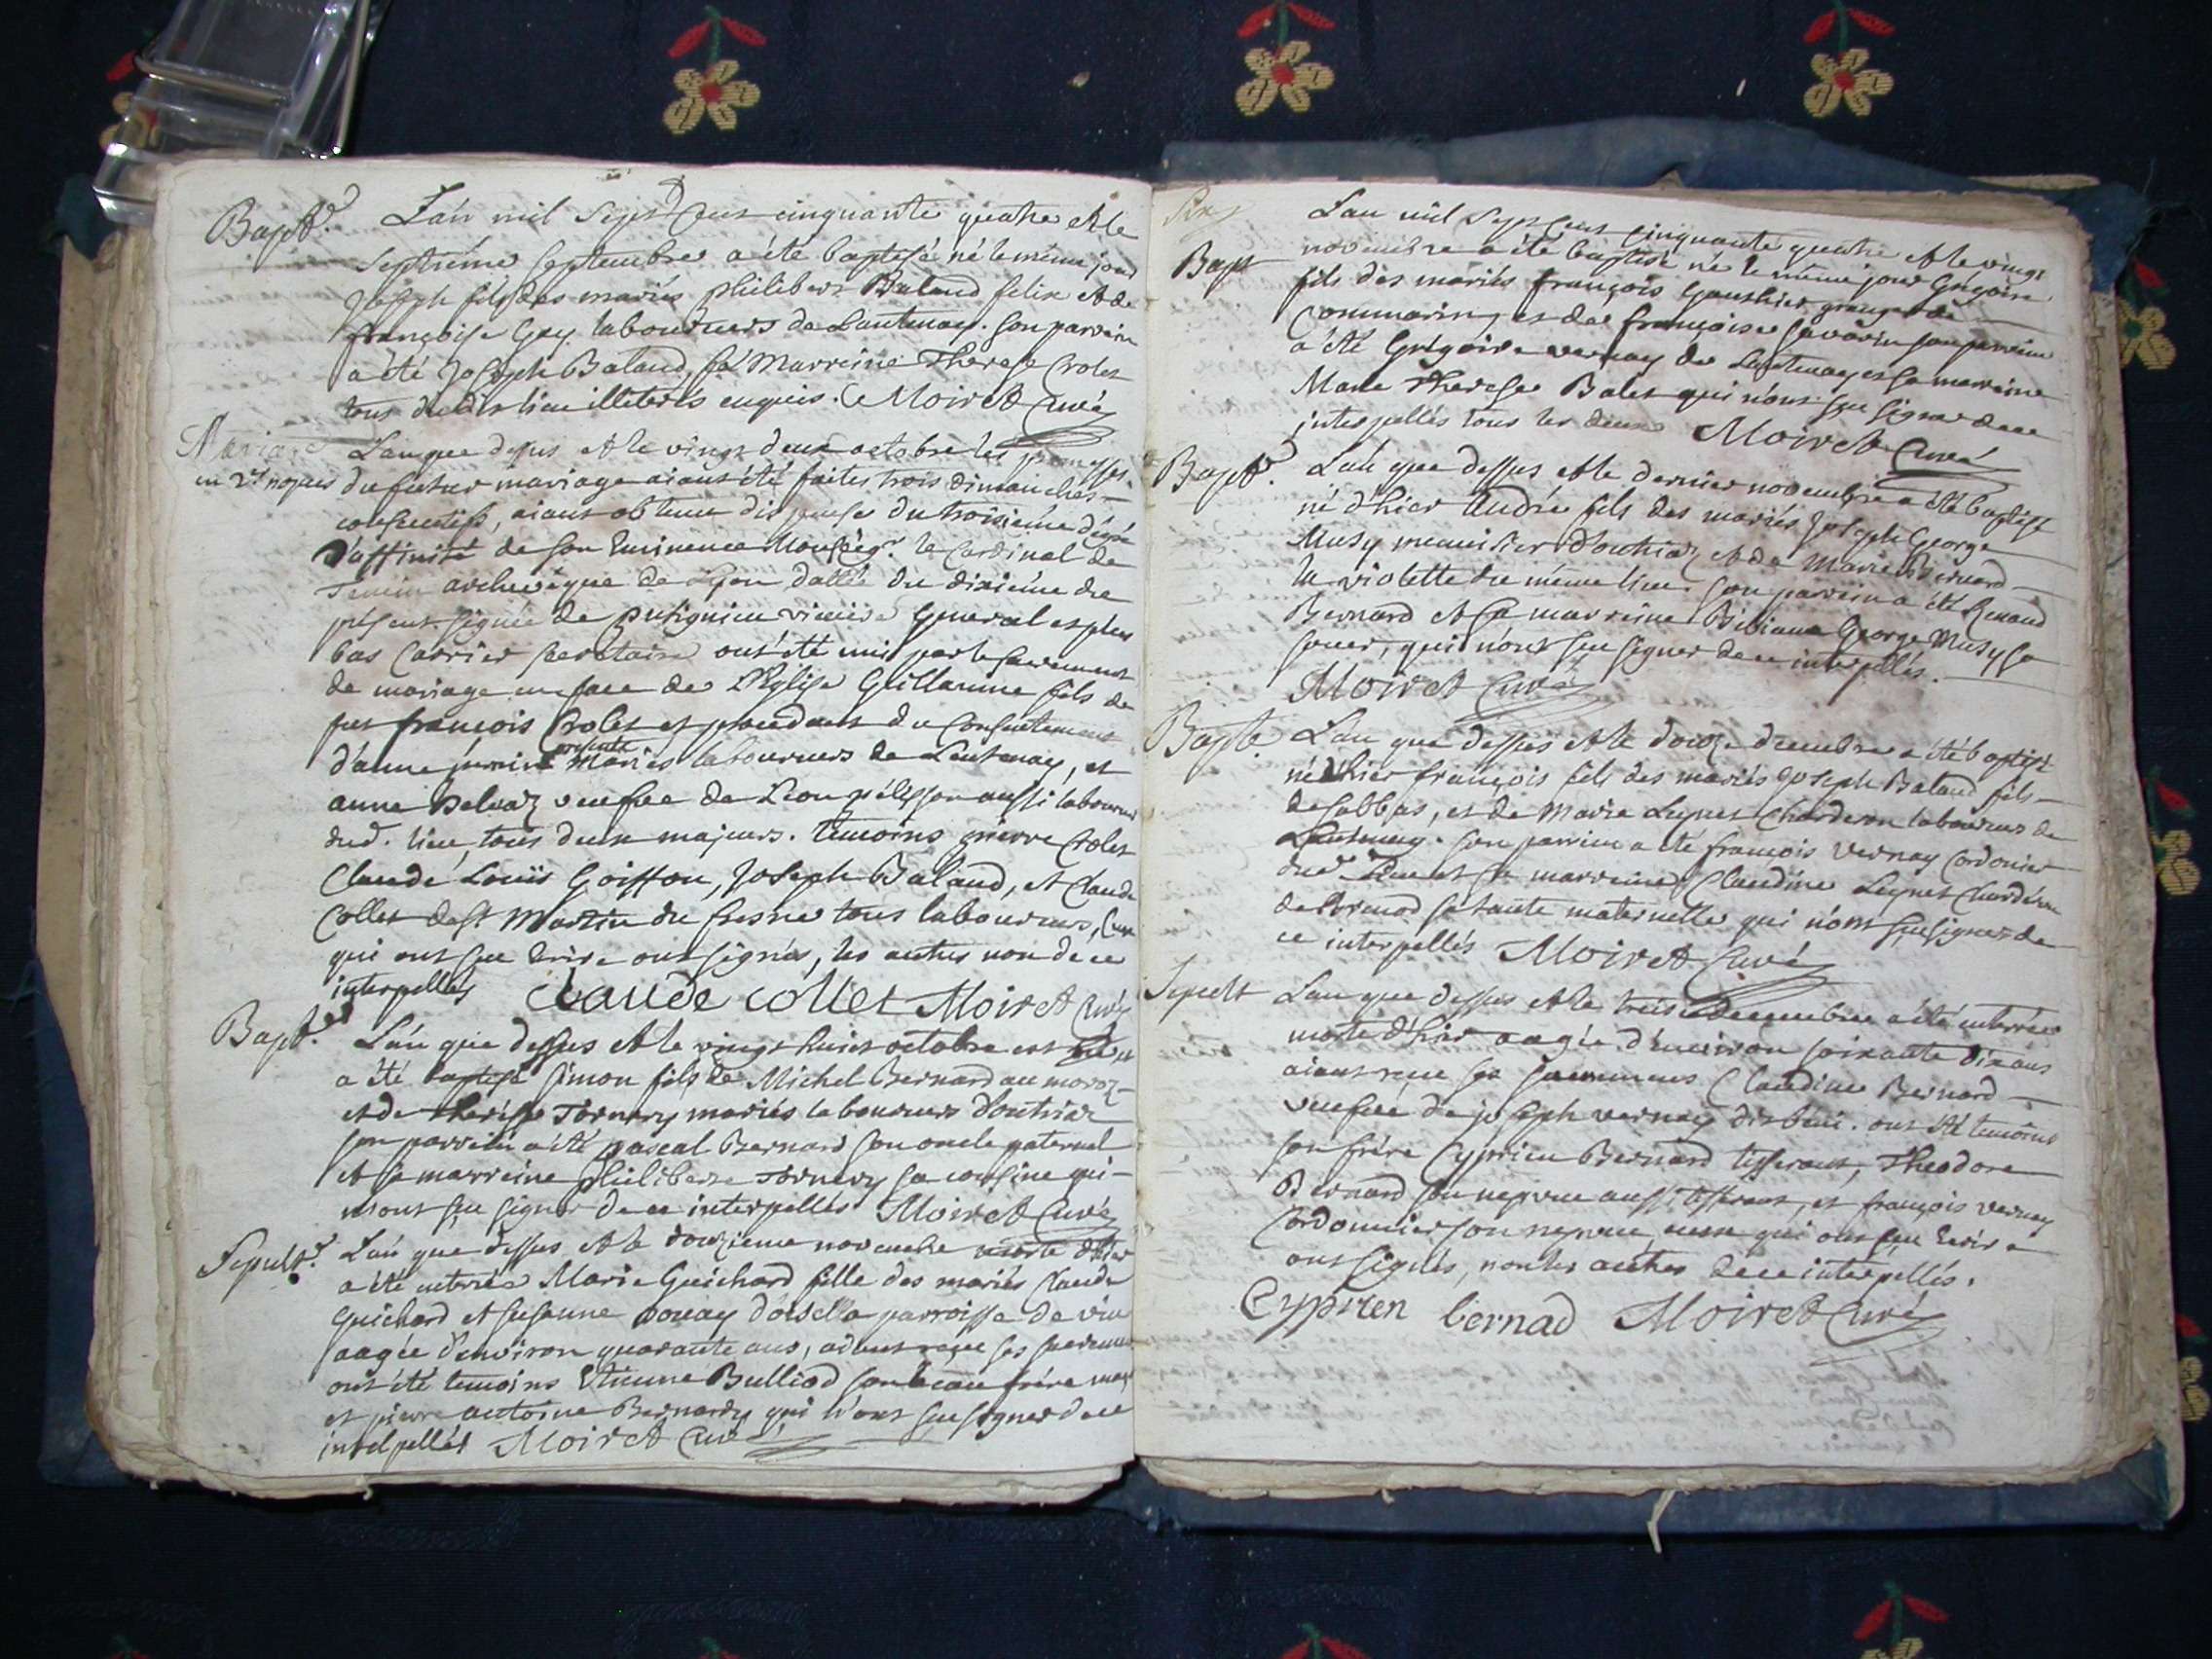 Bapt.e L'an mil sept cens cinquante quatre et le
septiéme septembre a été baptisé né le méme jour
Joseph fils des mariés philibert Baland felix et de
françoise Gey laboureurs de Lantenay. son parrein
a été Joseph Baland, sa Marreine Therese Crolet
tous dudit lieu illiterés enquis. Moiret Curé
Mariage L'an que dessus et le vingt deux octobre les promesses
en 2des nopces du futur mariage aiant été faites trois dimanches
consecutifs, aiant obtenu dispense du troisiéme dégré
d'affinité de son Eminence Monseigr. le Cardinal de
Tencin archevêque de Lyon datée du dixiéme du
présent signée de general et plus
bas Carrier secretaire ont été unis par le sacrement
de mariage en face de L'Eglise Guillaume fils de
feu françois Crolet et procedant du consentement
d'anne presente mariés laboureurs de Lantenay, et
anne veufve de Leon pélisson aussi laboureur
dud. lieu, tous deux majeurs. temoins pierre Crolet
Claude Louïs Goiffon, Joseph Baland, et Claude
Collet de St Martin du fresne tous laboureurs, Ceux
qui ont sçu Ecrire ont signés, les autres non de ce
interpellés Claude Collet Moiret Curé
Bapt.e L'an que dessus et le vingt huict octobre est né et
a été baptisé Simon fils de Michel Bernard au moroz
et de Therése Tornery mariés laboureurs d'outriaz
son parrein a été pascal Bernard son oncle paternel
et sa marreine philiberte Tornery sa cousine qui
n'ont sçu signer de ce interpellés Moiret Curé
Sepult.e L'an que dessus et le douzieme novembre morte d'hier
a été enterrée Marie Guichard fille des mariés Claude
Guichard et Susanne Douay d'oisella parroisse de vieu
aagée d'environ quarante ans, aiant reçue ses sacremens
ont été temoins Etienne Bulliod son beau frére
et pierre antoine Bernardy qui n'ont sçu signer de ce
interpellés Moiret Curé
Bapt L'an mil Sept Cent Cinquante quatre et le vingt
novembre a été baptisé né le méme jour Grigoire
fils des mariés françois Gauthier granger de
Commarin, et de françoise Savarin son parrein
a été Grigoire vernay de Lantenay et sa marreine
Marie Therese Balet qui n'ont sçu signer de ce
interpellés tous les deux Moiret Curé
Bapt.e L'an que dessus et le dernier novembre a été baptisé
né d'hier André fils des mariés Joseph George
Musy menuisier d'outriaz et de Marie Bernard
la violette du méme lieu. son parrein a été Renaud
Bernard et sa marreine Bibiane George Musy sa
soeur, qui n'ont sçu signer de ce interpellés.
Moiret Curé
Bapte L'an que dessus et le douze decembre a été baptisé
né d'hier françois fils des mariés Joseph Baland fils
de Sabbas, et de Marie Luynet Charderon laboureurs de
Lantenay. son parrein a été françois vernay Cordonier
dud. Lieu et sa marreine Claudine Luynet Charderon
de Brenod sa tante maternelle qui n'ont sçu signer de
ce interpellés Moiret Curé
Sepult L'an que dessus et le treise decembre a été enterrée
morte d'hier aagée d'environ soixante dix ans
aiant reçue ses sacremens Claudine Bernard
veufve de joseph vernay dit béni. ont été temoins
son frére Cyprien Bernard tisserant, Theodore
Bernard son nepveu aussi tisserant, et françois vernay
Cordonnier son nepveu, ceux qui ont sçu Ecrire
ont signés, non les autres de ce interpellés.
Cyprien bernad Moiret Curé